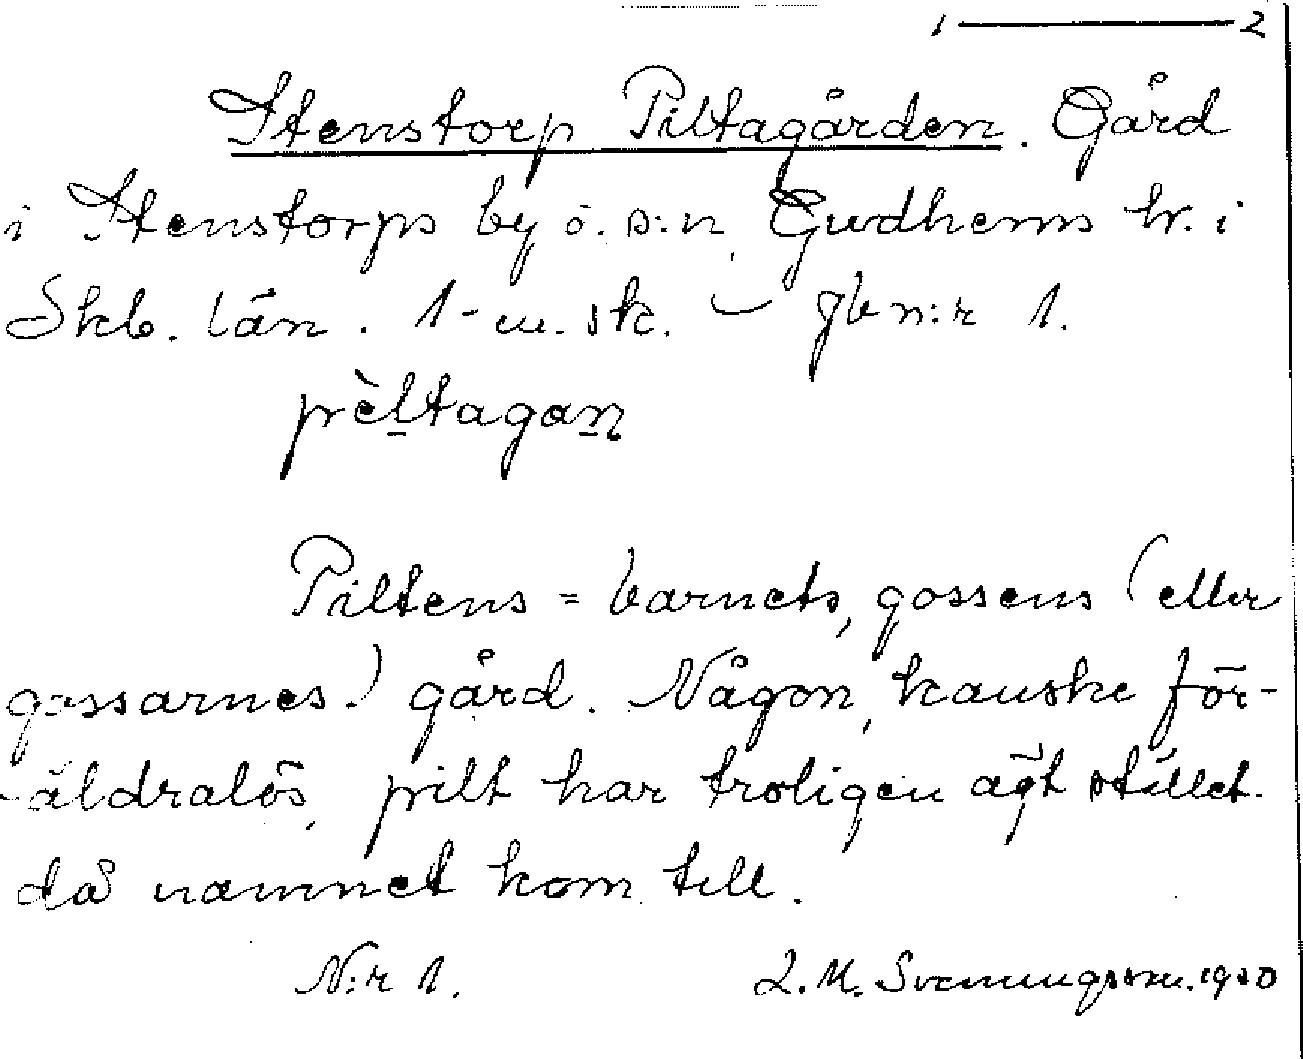 1 — 2
Stenstorp Piltagården. Gård
i Stenstorps by o. s:n, Gudhems hr. i
Skb. län. 1 - m. sk. – gb n:r 1.
pèltagan
Piltens = barnets, gossens (eller
gossarnes) gård. Någon, kanske för-
äldralös, pilt har troligen ägt stället
då namnet kom till.
N:r 1. L. M. Svenungsson. 1920